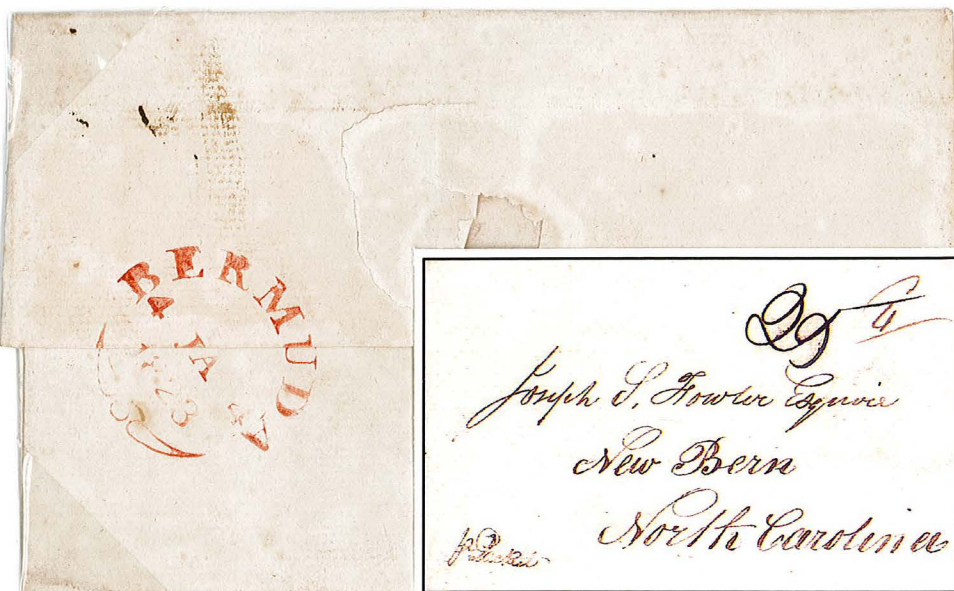 BERMUDA
4 JA
25 4
Joseph S. Fowler Esquire
New Bern
North Carolina